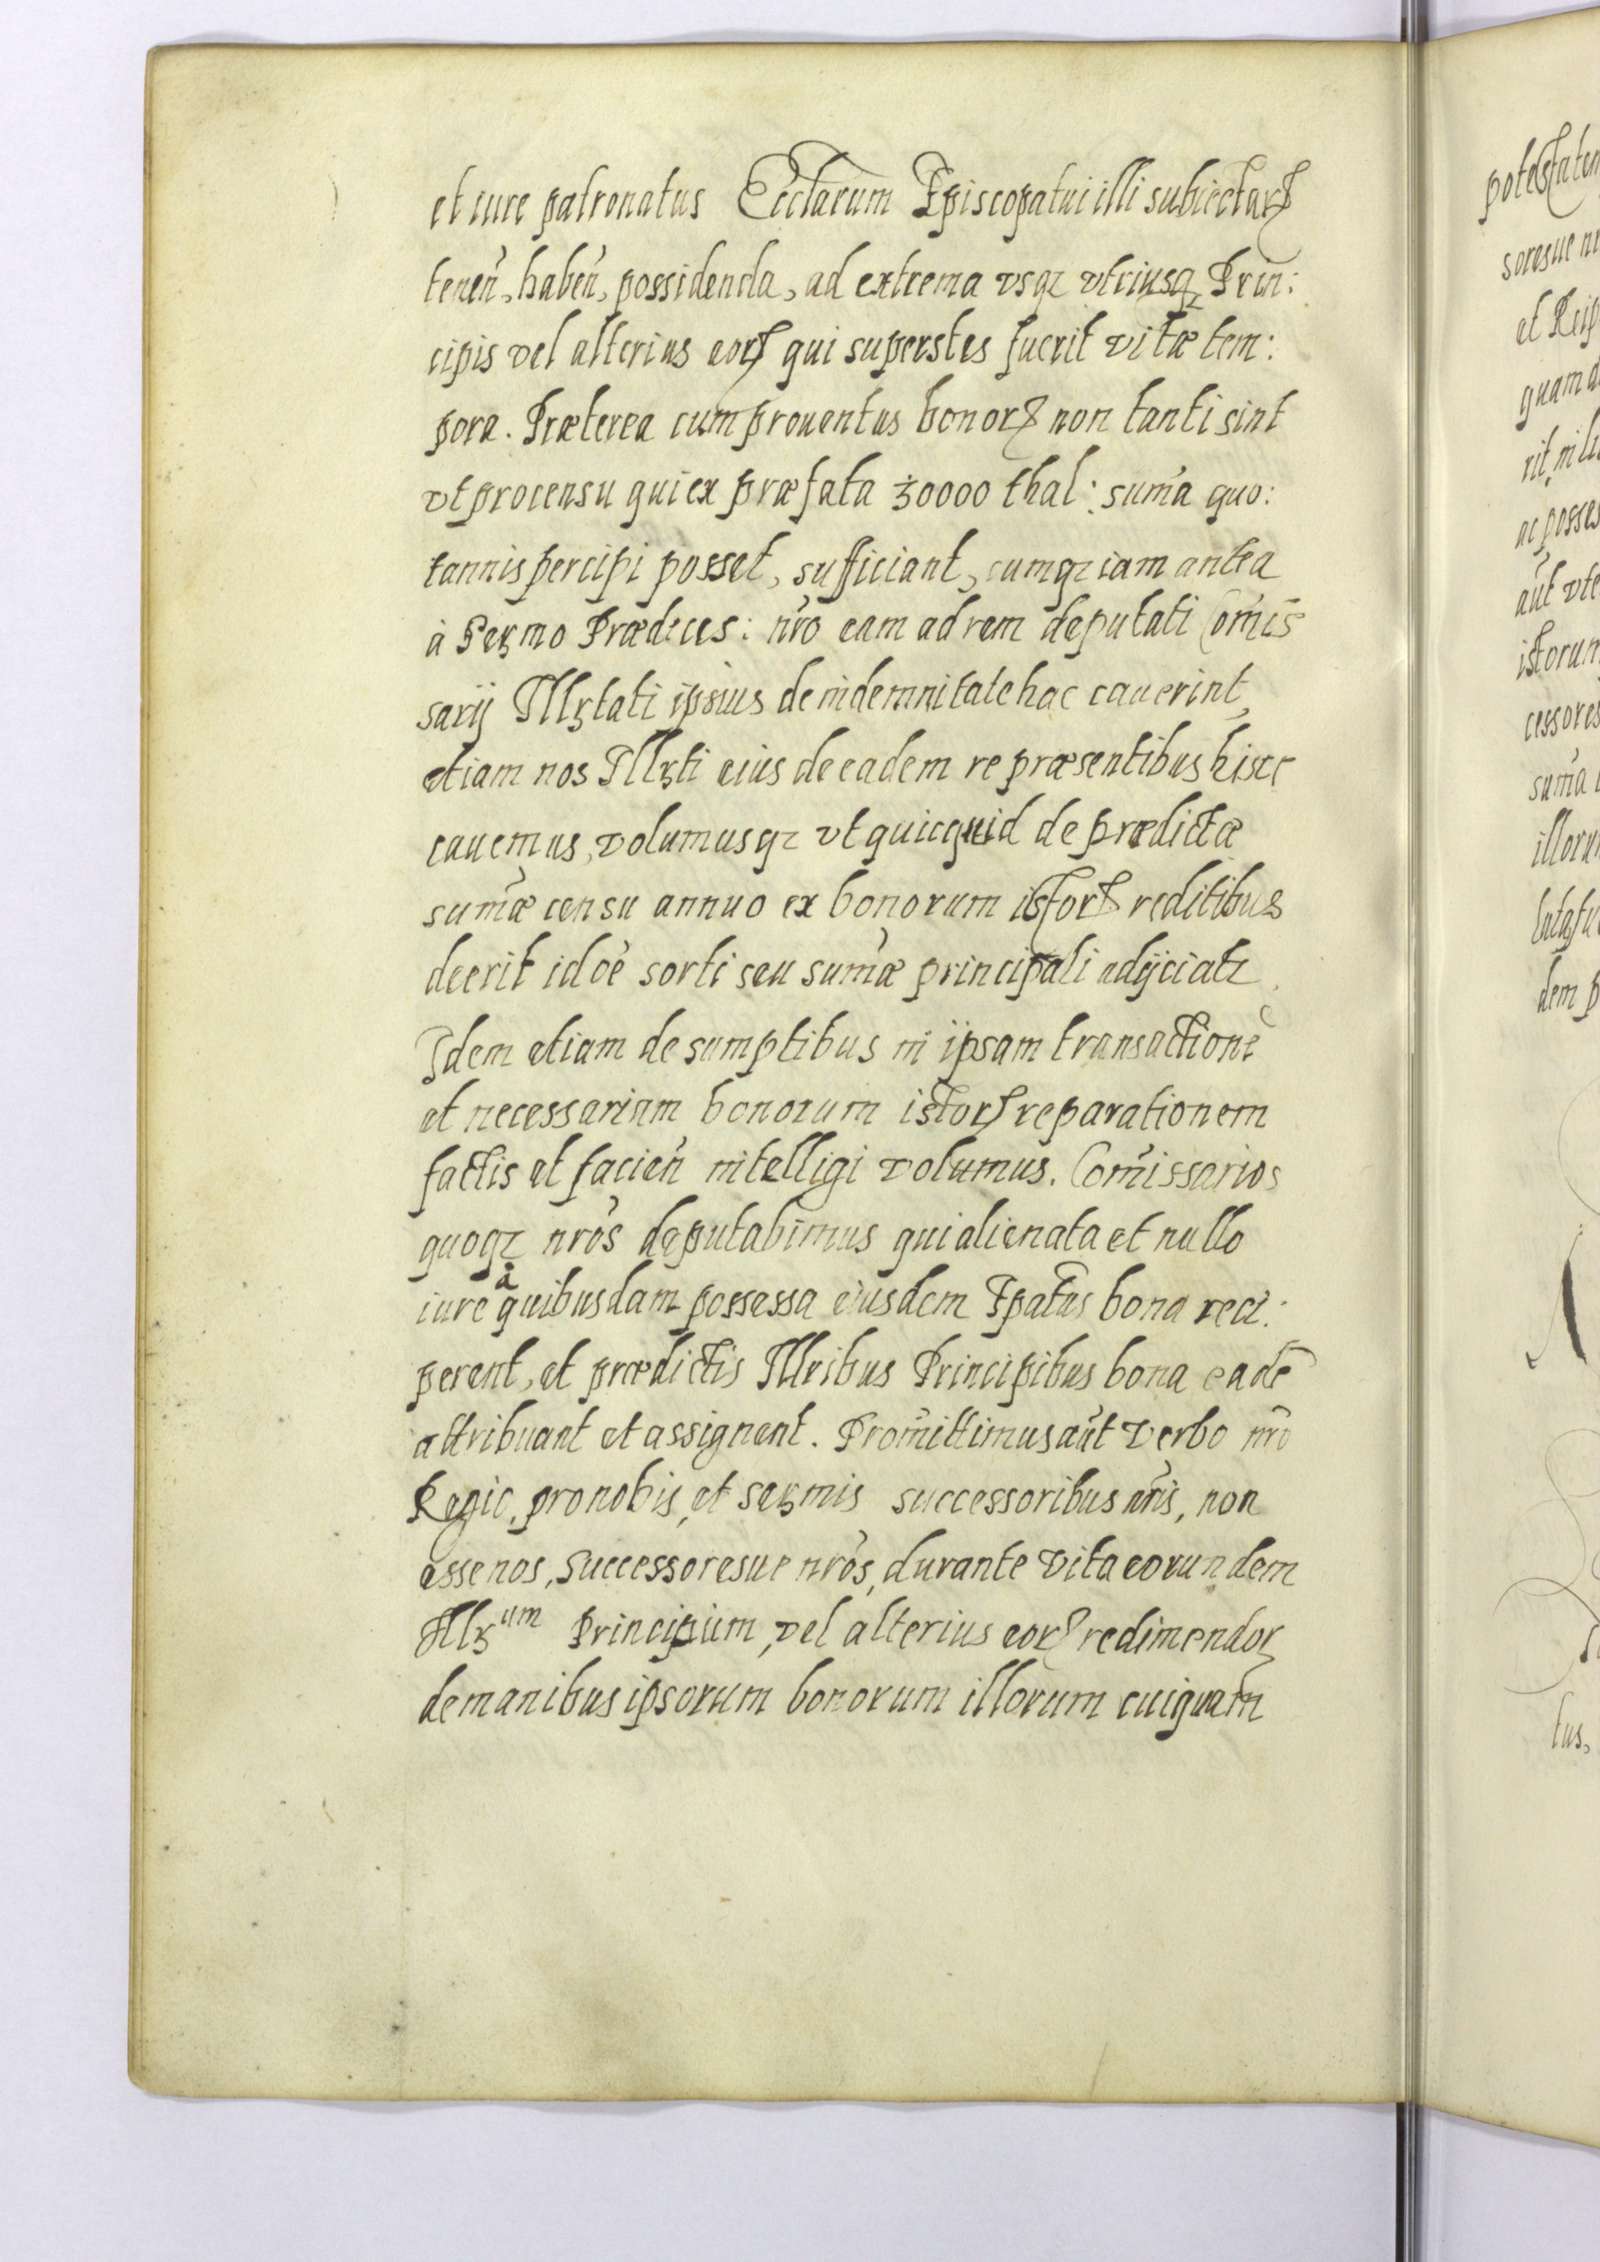 et iure patronatus Ecclarum Episcopatui illi subiectarꝝ
teneñ, habeñ, possidenda, ad extrema vsqꝫ vtriusqꝫ Prin:
cipis vel alterius eorꝝ qui superstes fuerit vitæ tem:
pora. Præterea cum prouentus bonorꝝ non tanti sint
vt pro censu qui ex præfata 30000 thal: sum̃a quo:
tannis percipi posset, sufficiant, cumqꝫ iam antea
à Serᵐᵒ Prædeces: nr̃o eam ad rem deputati Com̃is
sarij Illꝫtati ipsius de indemnitate hac cauerint,
etiam nos Illꝫti eius de eadem re præsentibus hisce
cauemus, volumusqꝫ vt quicquid de prædictæ
sum̃æ censu annuo ex bonorum istorꝝ reditibus
deerit id oẽ sorti seu sum̃æ principali adijciatꝛ.
Idem etiam de sumptibus in ipsam transactionẽ
et necessariam bonorum istorꝝ reparationem
factis et facieñ intelligi volumus. Com̃issarios
quoqꝫ nr̃os deputabimus qui alienata et nullo
iure à quibusdam possessa eiusdem Ep̃atus bona reci:
perent, et prædictis Illribus Principibus bona eadẽ
attribuant et assignent. Promittimus aũt verbo nr̃o
Regio, pro nobis, et serꝫmis successoribus nr̃is, non
esse nos, successoresue nr̃os, durante vita eorundem
Illꝫᵘᵐ Principum, vel alterius eorꝝ redimendorꝝ
de manibus ipsorum bonorum illorum cuiquam
potestatem
soresue
et Reip
quam
rit
ac posses
aũt vte
istorum
cessores
sum̃a
illorum
dem p
tus,